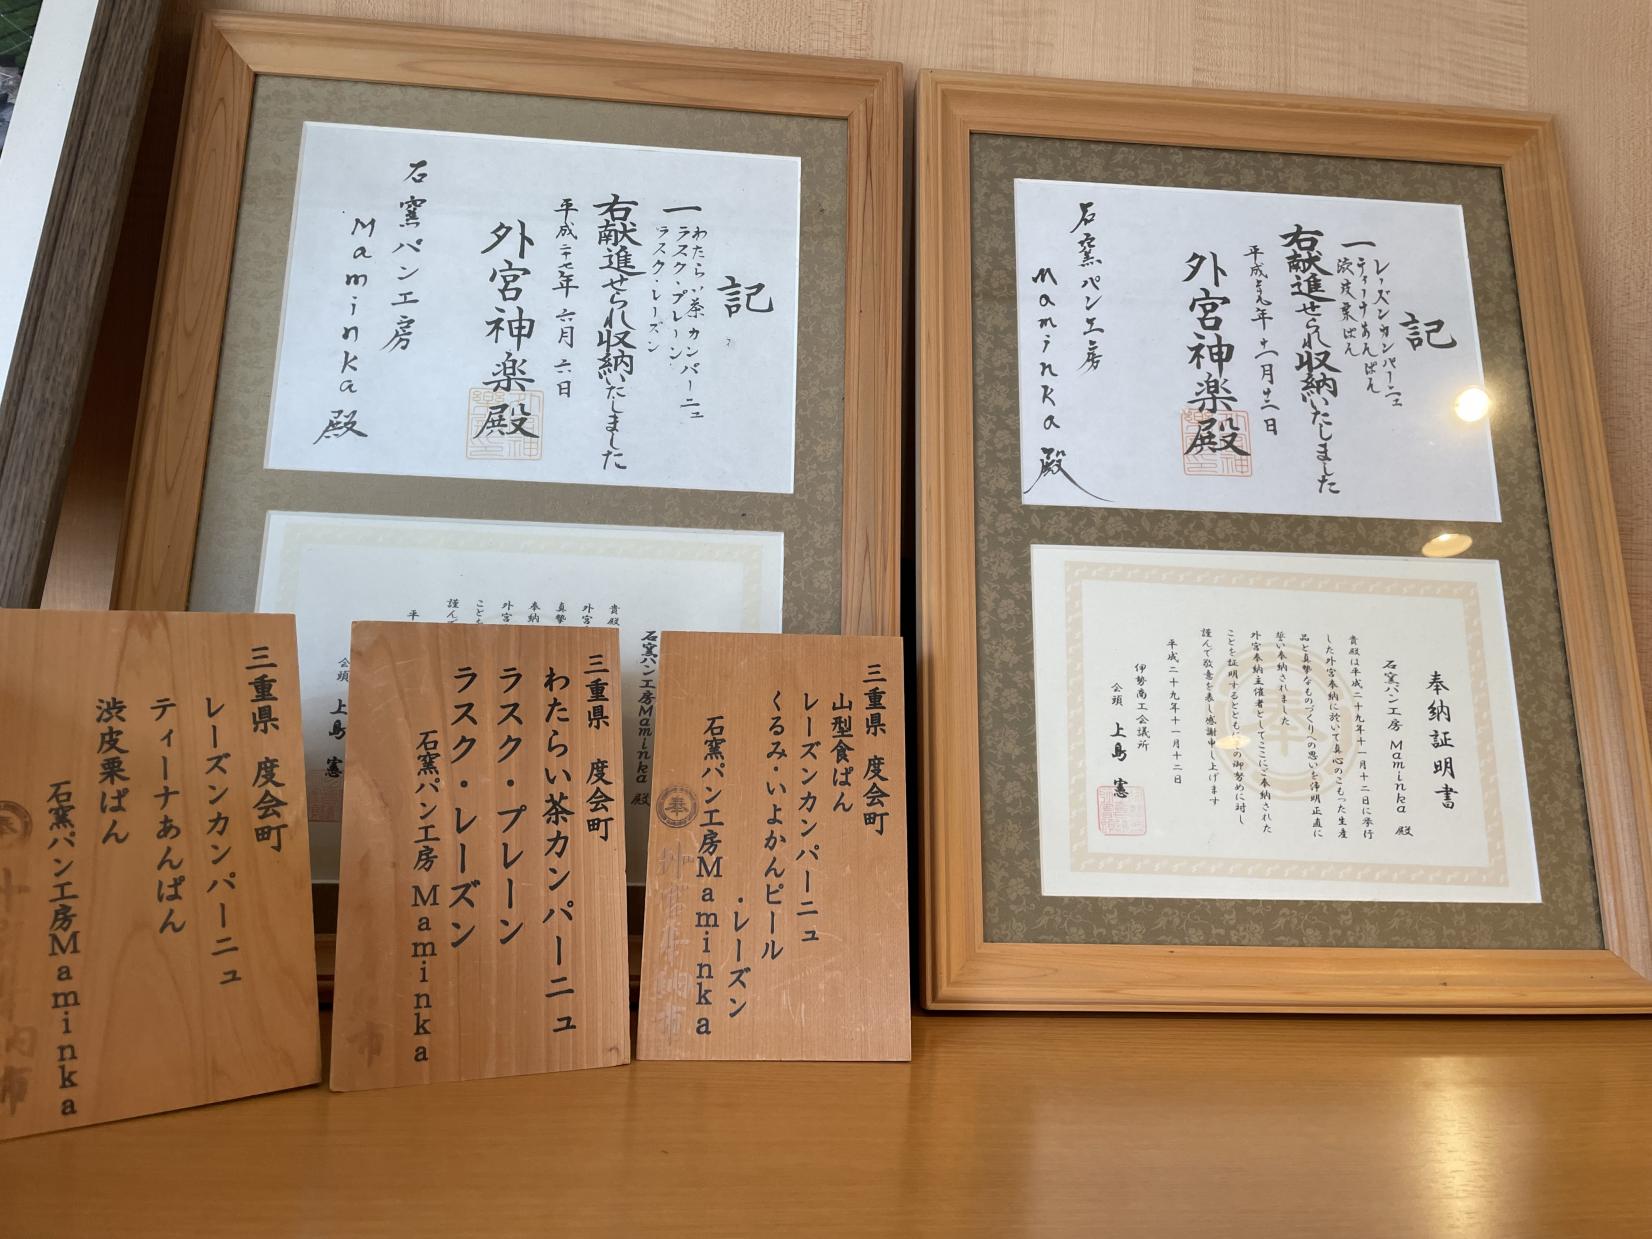 記
一 わたらい茶カンパーニュ
ラスク・プレーン
ラスク・レーズン
右献進せられ収納いたしました
平成二十七年 六月 六日
外宮神楽殿
石窯パン工房
Maminka 殿
記
一 レーズンカンパーニュ
ティーナあんぱん
渋皮栗ぱん
右献進せられ収納いたしました
平成二十九年 十一月 十二日
外宮神楽殿
石窯パン工房
Maminka 殿
石窯パン工房Maminka 殿
貴殿
外宮
真摯
奉納
外宮
こと
謹ん
平
会頭 上島 憲
奉納証明書
石窯パン工房 Maminka 殿
貴殿は平成二十九年十一月十二日に挙行
した外宮奉納に於いて真心のこもった生産
品と真摯なものづくりへの思いを浄明正直に
誓い奉納されました
外宮奉納主催者としてここにご奉納された
ことを証明するとともにその御努めに対し
謹んで敬意を表し感謝申し上げます
平成二十九年十一月十二日
伊勢商工会議所
会頭 上島 憲
三重県 度会町
山型食ぱん
レーズンカンパーニュ
くるみ・いよかんピール
・レーズン
石窯パン工房Maminka
奉
外宮奉納市
三重県 度会町
わたらい茶カンパーニュ
ラスク・プレーン
ラスク・レーズン
石窯パン工房Maminka
市
三重県 度会町
レーズンカンパーニュ
ティーナあんぱん
渋皮栗ぱん
石窯パン工房Maminka
納市